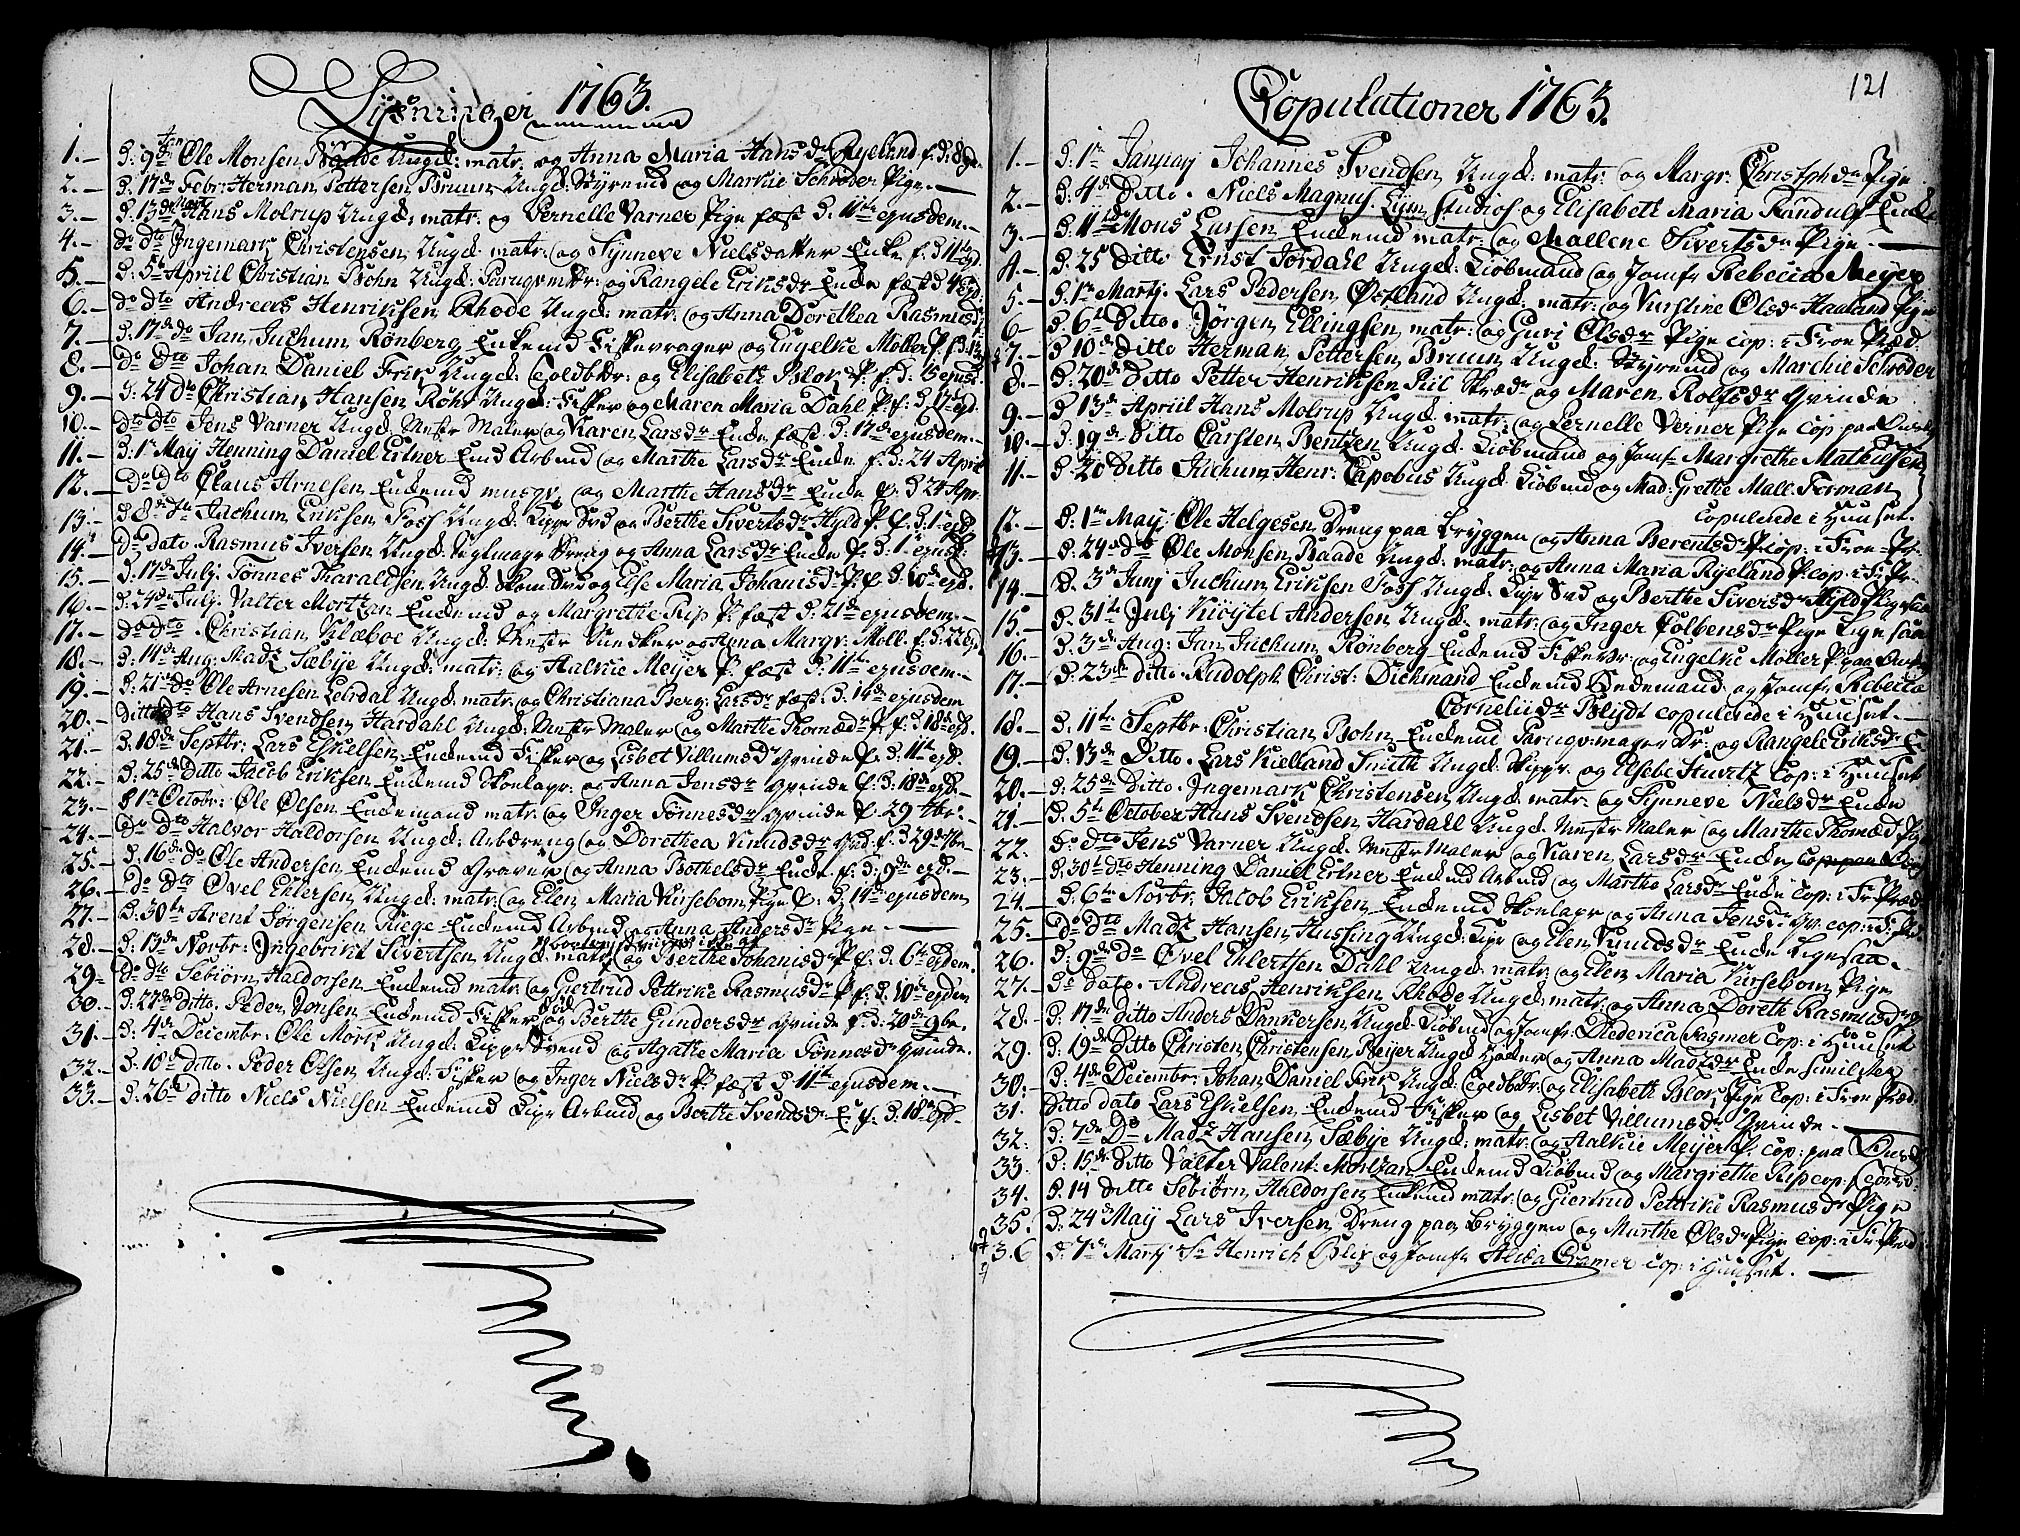 Lysninger 1763.
1.– D: 9de Ole Monsen Baade Ungd: matr: og Anna Maria Hans dr Ryeland f: D: 8
2.– D. 17de Febr: Herman Pettersen Bruun Ungd: Styrmd og Markie Schrøder Pige.–
3.– D. 13de Hans Molrup Ungd: matr: og Pernelle Varner Pige fæst D. 11te ejusdem.–
4.– do dto Ingemark Christensen Ungd: matr: og Synneve Nielsdatter Enke f. D 11te ejd.
5.– D: 5te Apriil Christian Bohn Ungd: og Rangele Eriksdr Enke fæst D 4 ejd:
6.– do dto Andreas Henriksen Rhode Ungd: matr: og Anna Dorethea Rasmusdr
7.– D. 17de do Jan Juchum Rønberg Enkemd Fiskevrager og Engelke Møller P. f. D.
8.– Do Dto Johan Daniel Frik Ungd: Goldbdr: og Elisabeth Blok P. f: D. 15 ejusd.
9.– D: 24 do Christian Hansen Røhr Ungd: Fisker og Maren Maria Dahl P. f: D. 17de ejd.
10.– do dto Jens Varner Ungd Mestr Maler og Karen Larsdr Enke fæst D. 17de ejusdem.–
11.– D. 1te May Henning Daniel Ertner Enkmd Arbmd og Marthe Larsdr Enke f. D: 24 April
12.– Do dto Claus Arnesen Enkemd og Marthe Hansdr Enke f: D 24 Apr.
13.– D 8de Juchum Eriksen Foss Ungd: Svd og Berthe Sivertsdr Hyld P. f: D. 1te ejd
14.– Do dato Rasmus Iversen Ungd: Seylmagr Dreng og Anna Larsdr Enke f: D. 1te ejusd:
15.– D. 17de Julj. Tønnes Tharaldsen Ungd Skom Svd og Else Maria Johanisdr P. f D. 10de ejd.
16.– D: 24de Julj. Valter Mortzan Enkemd og Margrethe Rip P. fæst D. 21de ejusdem.–
17.– do dto. Christian Klæboe Ungd: Mestr Snedker og Anna Margr: Moll. f: D. 22 ejd
18.– D: 14de Aug: Madz Sæbye Ungd: matr: og Aalkie Meyer P. fæst D: 11te ejusdem.–
19.– D: 21de do Ole Arnesen Leirdal Ungd: matr og Christiana Berg: Larsdr fæst: D. 14de ejusdem
20.– ditto dto Hans Svendsen Hardahl Ungd: Mestr Maler og Marthe Thomædr P. f: D. 18de ejd.
21.– D: 18de Septbr: Lars Eskelsen Enkemd Fisker og Lisbet Villumsdr Qvinde f. D. 11te ejd.
22.– D: 25de Ditto Jacob Eriksen Enkemd Skonlapr: og Anna Jensdr Qvinde f: D: 18de ejd.–
23.– D 1te Octobr: Ole Olsen Enkemand matr: og Inger Tønnesdr Qvinde f. 29 7br:–
24.– Do Dto Halvor Haldorsen Ungd: Arbdreng og Dorethea Knudsdr Qvd: f: D 29de 7br–
25.– D: 16de do Ole Andersen Enkemd Graver og Anna Bothelsdr Enke f: D: 9de ejd.–
26.– Do dto Øvel Ehlersen Ungd: matr: og Elen Maria Kirsebom Pige f: D: 14de ejusdem
27.– D: 30te Arent Jørgensen Ruege Enkemd Arbmd og Anna Andersdr Pige.–
28.– D: 13de Novbr: Ingebrikt Sivertsen Ungd matr og Berthe Johanisdr P f: D. 6te ejdem.
29– do dto Sebiørn Haldorsen Enkemd matr: og Giertrud Pettrike Rasmusdr P f: D. 10de ejdem
30.– D. 27de Ditto. Peder Jonsen Enkemd Fisker og Berthe Gundersdr Qvinde f: D. 20de 9br.
31.– D: 4de Decembr: Ole Mørk Ungd: Svend og Agathe Maria Tønnesdr Qvinde.
32.– D: 18de ditto. Peder Olsen Ungd: Fisker og Inger Nielsdr P. fæst D 11te ejusdem.–
33.– D. 26de ditto Niels Nielsen Enkemd Arbmd og Berthe Svendsdr E: f: D. 18de ejd–
Copulationer 1763.
121
1.– D: 1te Januay Johannes Svendsen Ungd: matr: og Margr: Christphdr Pige
2.– D: 4de Ditto. Niels Magnus. Studios og Elisabeth Maria Randulf Enke
3.– D: 11te Mons Larsen Enkemd matr: og Mallene Sivertsdr Pige.–
4.– D. 25 Ditto Ernst Jordahl Ungd: Kiøbmand og Jomfr Rebecca Meyer
5.– D: 1te Martj. Lars Pedersen Østland Ungd: matr: og Kirstine Olsdr Haaland Pige
6– D 6te Ditto. Jørgen Ellingsen matr: og Guri Olsdr Pige cop: i Froe Præd
7.– D 10de Ditto Herman Pettersen Bruun Ungd: Styrmd og Marchie Schrøder
8.– D: 20de Ditto Petter Henriksen Piil og Maren Rolfsdr Qvinde
9.– D 13de Apriil Hans Molrup Ungd. matr: og Pernelle Verner Pige cop. paa
10.– D. 19de Ditto Carsten Bentzen Ungd: Kiøbmand og Jomfr Margrethe Mathiesen
11.– D 20 Ditto Juchum Henr: Ungd. Kiøbmd og Mad: Grethe Mall. Forman
copulerede i Huuset.
12.– D: 1te May: Ole Helgesen Dreng paa Bryggen og Anna Berentsdr P. cop: i Froe-Pr.
13.– D: 24de do Ole Monsen Baade Ungd: matr: og Anna Maria Ryeland P. cop: i Fr Pr
14.– D. 3de Junj Juchum Eriksen Foss Ungd: Svd og Berthe Siversdr Hyld Pige
15.– D. 31te Julj Kiøstel Andersen Ungd: matr: og Inger Colbensdr Pige Ligesaa
16.– D. 3de Aug: Jan Juchum Rønberg Enkemd Fiskevr: og Engelke Møller P. paa
17.– D: 23de ditto. Rudolph Christ: Dichmand Enkemd Bedemand og Jomfr Ribecca
Corneliidr Blijdt copulerede i Huuset.–
18.– D. 11te Septbr: Christian Bohn Enkemd Paruqvmager Sv: og Rangele Eriksdr E.
19.– D: 13de Ditto. Lars Kielland Smith Ungd: Skippr og Elsebe Huvitz Cop: i Huuset
20.– D: 25de Ditto. Ingemark Christensen Ungd: matr: og Synneve Nielsdr Enke
21.– D. 5te October Hans Svendsen Hardall Ungd: Mestr Maler og Marthe Thomæd Pige
22. Do dto Jens Varner Ungd. Mestr Maler og Karen Larsdr Enke
23.– D: 30te dto Henning Daniel Ertner Enkemd Arbmd og Marthe Larsdr Enke cop: i Fr Præd
24.– D: 6te Novbr: Jacob Eriksen Enkemd Skonlapr og Anna Jensdr Qv: cop: i Fr
25.– do dto Madz Hansen Hussing Ungd: og Elen Knudsdr Enke Ligesaa.
26. D: 9de do Øvel Ehlertsen Dahl Ungd: matr: og Elen Maria Kirsebom Pige
27.– Do dato. Andreas Henriksen Rhode Ungd: matr: og Anna Doreth Rasmusdr
28.– D. 17de Ditto Anders Danckersen Ungd. Kiøbmd og Jomfr: Diderica Fasmer Cop: i Huuset
29. D. 19de Ditto Christen Christensen Beyer Ungd og Anna Madzdr Enke
30: D: 4de Decembr: Johan Daniel Frik Ungd og Elisabeth Blok Pige Cop: i Froe Præd:
31. Ditto dato Lars Eskelsen Enkemd Fisker og Lisbet Villumsdr Qvinde.–
32: D: 7de Do Madz Hansen Sæbye Ungd: matr: og Aalkie Meyer P. cop: paa
33. D: 15de Ditto Valter Valent: Mortzan Enkemd Kiøbmd og Margrethe Rip cop:
34. D. 14 ditto Sebiørn Haldorsen Enkemd matr: og Giertrud Pettrike Rasmusdr Pige
35. D: 24de May Lars Iversen Dreng paa Bryggen og Marthe Olsdr Pige cop: i Fr Præd
36 D: 7de Martj Sr Henrich Blix og Jomfr Alida Cramer cop: i Huuset.–